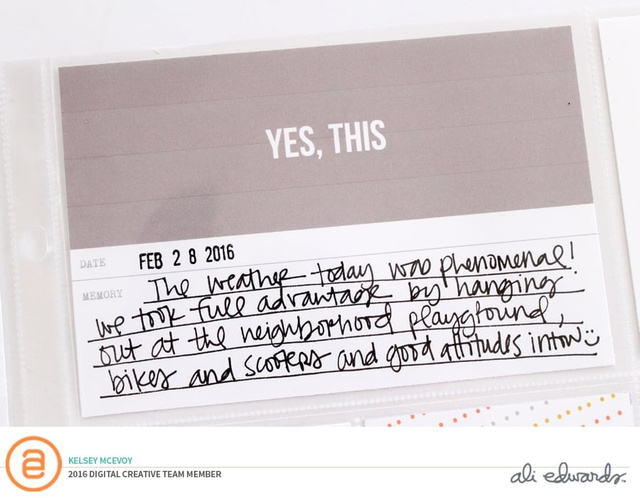 YES, THIS
DATE FEB 28 2016
MEMORY The weather today was phenomenal!
we took full advantage by hanging
out at the neighborhood playground,
bikes and scooters and good attitudes in tow
KELSEY MCEVOY
2016 DIGITAL CREATIVE TEAM MEMBER
ali edwards.